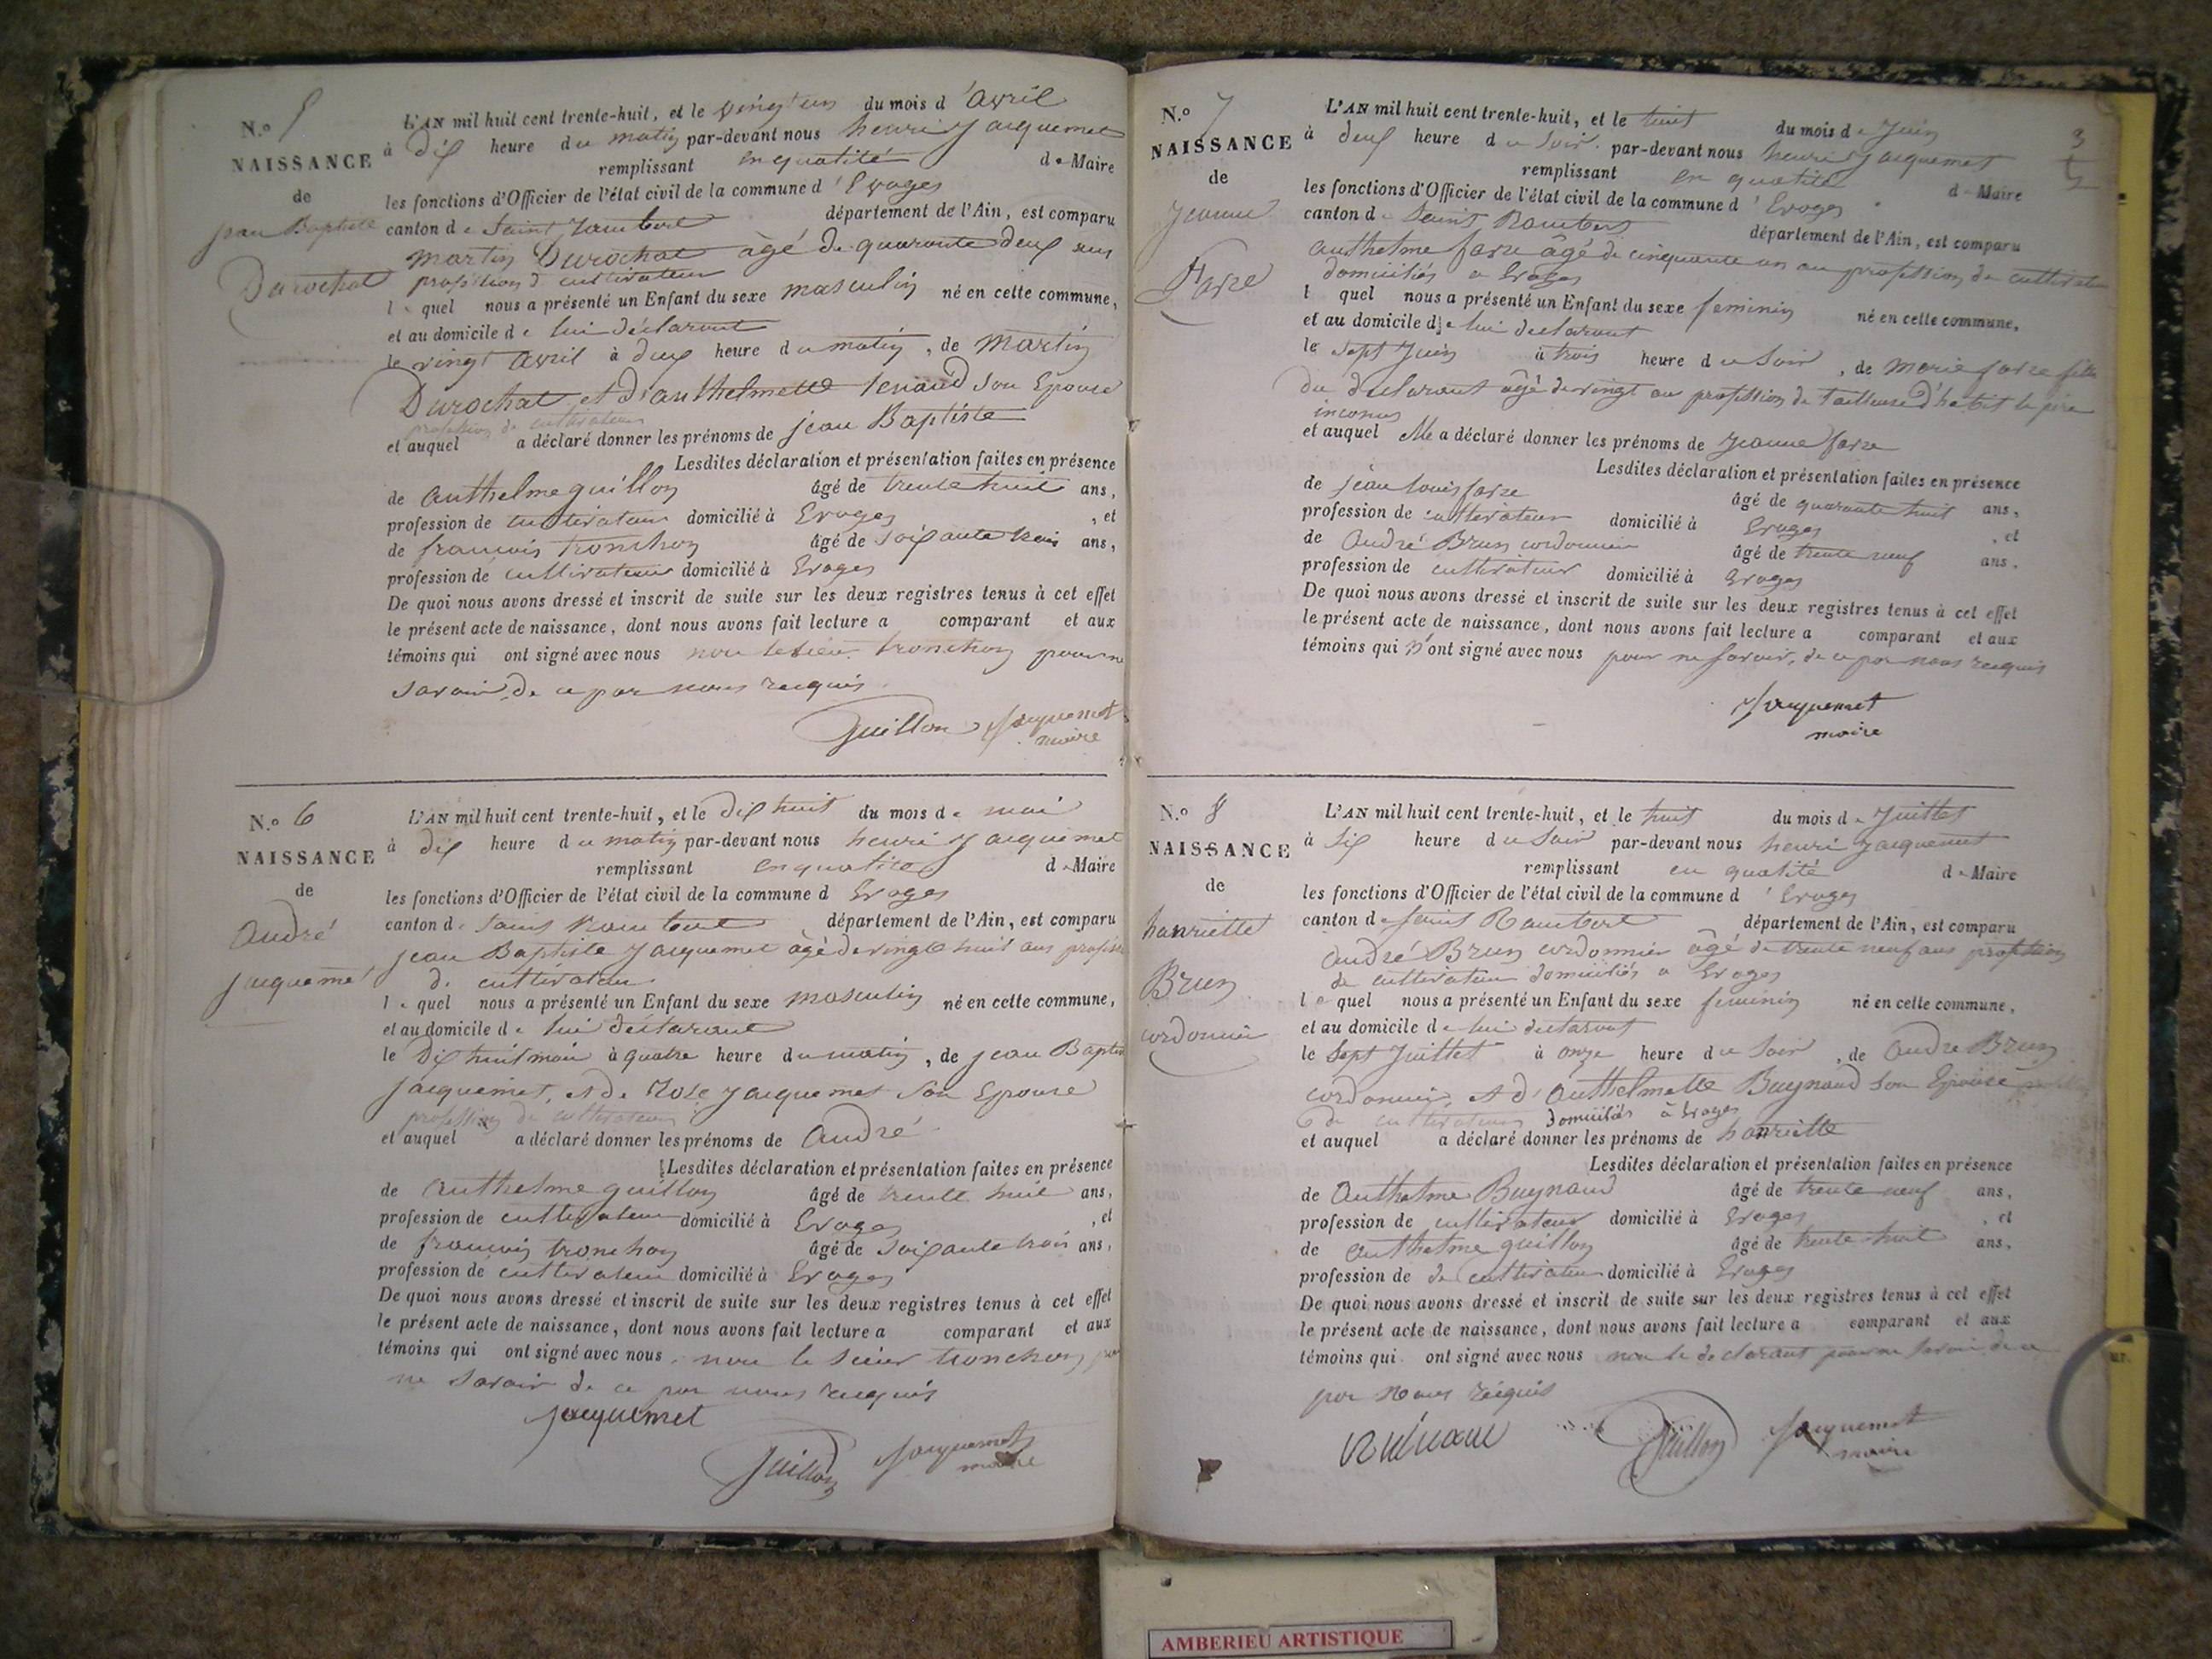 N.o 5
NAISSANCE
de
jean Baptiste
Durochat
L'AN mil huit cent trente-huit, et le vingt un du mois d'Avril
à dix heure du matin par-devant nous henri Jacquemet
remplissant en qualité de Maire
les fonctions d'Officier de l'état civil de la commune d'Evoges
canton de Saint Rambert département de l'Ain, est comparu
martin Durochat âgé de quarante deux ans
profession d cultivateur
le quel nous a présenté un Enfant du sexe masculin né en cette commune,
et au domicile de lui déclarant
le vingt avril à deux heure du matin, de Martin
Durochat et d'anthelmette son Epouse
profession de cultivateur
et auquel a déclaré donner les prénoms de jean Baptiste
Lesdites déclaration et présentation faites en présence
de anthelme guillon âgé de trente huit ans,
profession de cultivateur domicilié à Evoges, et
de françois tronchon âgé de soixante trois ans,
profession de cultivateur domicilié à Evoges
De quoi nous avons dressé et inscrit de suite sur les deux registres tenus à cet effet
le présent acte de naissance, dont nous avons fait lecture a comparant et aux
témoins qui ont signé avec nous non le sieur tronchon pour ne
savoir, de ce par nous requis
Guillon Jacquemet
maire
N.o 6
NAISSANCE
de
André
jacquemet
L'AN mil huit cent trente-huit, et le dix huit du mois de mai
à dix heure du matin par-devant nous henri Jacquemet
remplissant en qualité de Maire
les fonctions d'Officier de l'état civil de la commune d Evoges
canton de Saint Rambert département de l'Ain, est comparu
jean Baptiste Jacquemet âgé de vingt huit ans
de cultivateur
le quel nous a présenté un Enfant du sexe masculin né en cette commune,
et au domicile de lui déclarant
le dix huit mai à quatre heure du matin, de jean Baptiste
jacquemet, et de Rose Jacquemet son Epouse
profession de cultivateur
et auquel a déclaré donner les prénoms de André
Lesdites déclaration et présentation faites en présence
de Anthelme guillon âgé de trente huit ans,
profession de cultivateur domicilié à Evoges, et
de françois tronchon âgé de soixante trois ans,
profession de cultivateur domicilié à Evoges
De quoi nous avons dressé et inscrit de suite sur les deux registres tenus à cet effet
le présent acte de naissance, dont nous avons fait lecture a comparant et aux
témoins qui ont signé avec nous non le sieur tronchon
ne savoir de ce par nous requis
jacquemet
Guillon Jacquemet
maire
N.o 7
NAISSANCE
de
Jeanne
Favre
L'AN mil huit cent trente-huit, et le huit du mois de Juin
à deux heure du soir par-devant nous henri Jacquemet
remplissant en qualité de Maire
les fonctions d'Officier de l'état civil de la commune d'Evoges
canton de Saint Rambert département de l'Ain, est comparu
anthelme favre âgé de cinquante un an profession de cultivateur
domiciliés a Evoges
l quel nous a présenté un Enfant du sexe feminin né en cette commune,
et au domicile de lui declarant
le sept Juin à trois heure du soir, de marie favre fille
du declarant âgé de vingt an profession de tailleuse d'habit le père
inconnu
et auquel Elle a déclaré donner les prénoms de Jeanne favre
Lesdites déclaration et présentation faites en présence
de jean louis favre âgé de quarante huit ans,
profession de cultivateur domicilié à Evoges, et
de André Brun cordonnier âgé de trente neuf ans,
profession de cultivateur domicilié à Evoges
De quoi nous avons dressé et inscrit de suite sur les deux registres tenus à cet effet
le présent acte de naissance, dont nous avons fait lecture a comparant et aux
témoins qui n'ont signé avec nous pour ne savoir, de ce par nous requis
Jacquemet
maire
N.o 8
NAISSANCE
de
hanriette
Brun
cordonnier
L'AN mil huit cent trente-huit, et le huit du mois de Juillet
à six heure du soir par-devant nous henri Jacquemet
remplissant en qualité de Maire
les fonctions d'Officier de l'état civil de la commune d'Evoges
canton de Saint Rambert département de l'Ain, est comparu
André Brun cordonnier âgé de trente neuf ans profession
de cultivateur domiciliés a Evoges
le quel nous a présenté un Enfant du sexe feminin né en cette commune,
et au domicile de lui declarant
le sept Juillet à onze heure du soir, de André Brun
cordonnier, et d'Anthelmette Buynand son Epouse
de cultivateur domiciliés à Evoges
et auquel a déclaré donner les prénoms de hanriette
Lesdites déclaration et présentation faites en présence
de Anthelme Buynand âgé de trente neuf ans,
profession de cultivateur domicilié à Evoges, et
de anthelme guillon âgé de trente huit ans,
profession de de cultivateur domicilié à Evoges
De quoi nous avons dressé et inscrit de suite sur les deux registres tenus à cet effet
le présent acte de naissance, dont nous avons fait lecture a comparant et aux
témoins qui ont signé avec nous non le declarant pour ne savoir de ce
par nous requis
Guillon Jacquemet
maire
AMBERIEU ARTISTIQUE